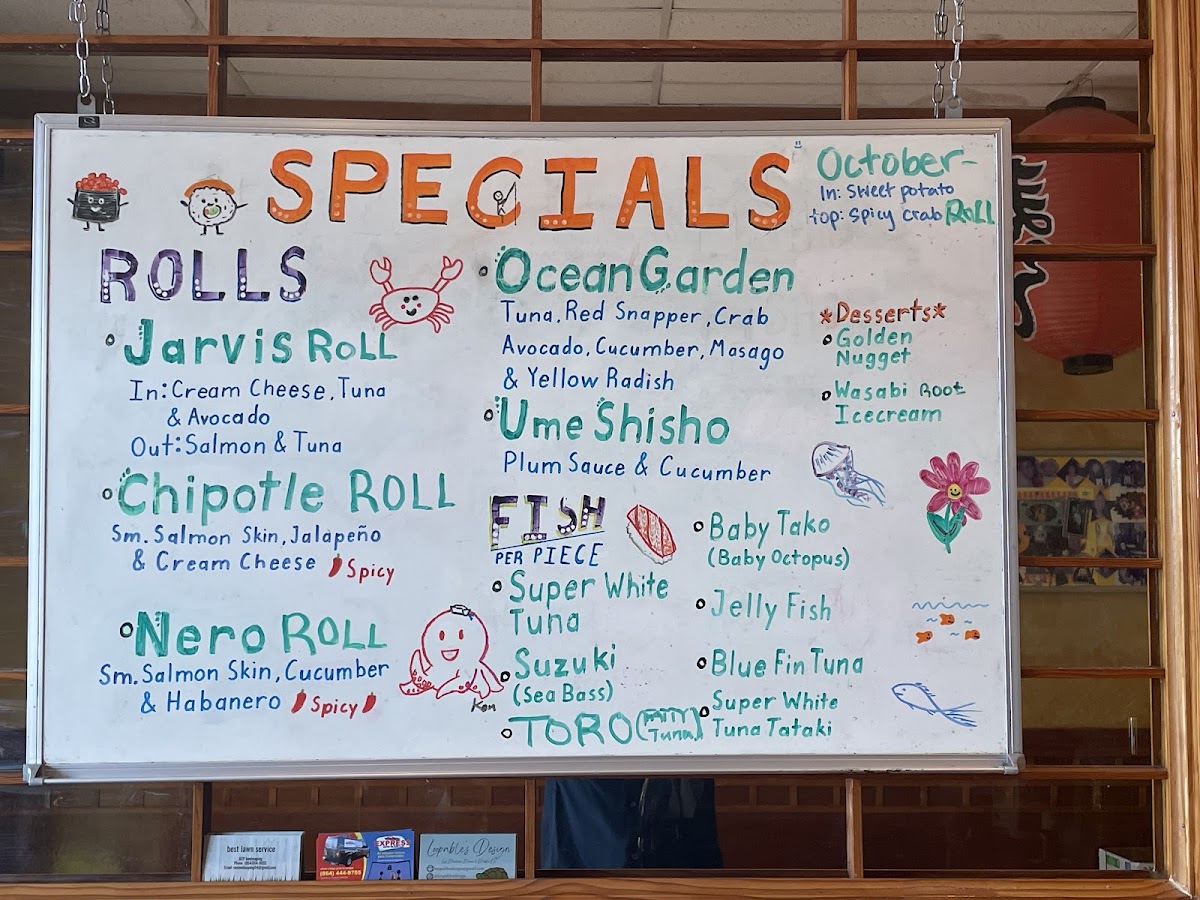 SPECIALS
October-
In: Sweet potato
top: spicy crab ROLL
ROLLS
Jarvis ROLL
In: Cream Cheese, Tuna
& Avocado
Out: Salmon & Tuna
Chipotle ROLL
Sm. Salmon Skin, Jalapeño
& Cream Cheese Spicy
Nero ROLL
Sm. Salmon Skin, Cucumber
& Habanero Spicy
Ocean Garden
Tuna, Red Snapper, Crab
Avocado, Cucumber, Masago
& Yellow Radish
Ume Shisho
Plum Sauce & Cucumber
FISH
PER PIECE
Super White
Tuna
Suzuki
(Sea Bass)
TORO (FATTY
Tuna)
Baby Tako
(Baby Octopus)
Jelly Fish
Blue Fin Tuna
Super White
Tuna Tataki
*Desserts*
Golden
Nugget
Wasabi Root
Icecream
Ken
best lawn service
EXPRESS
(864) 444-8755
Design